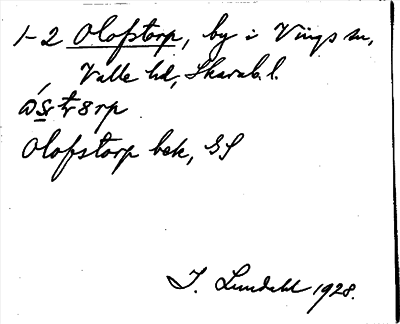 1-2 Olofstorp, by i Vings sn,
Valle hd, Skarab. l.
Olofstorp bek, GS
I. Lundahl 1928.